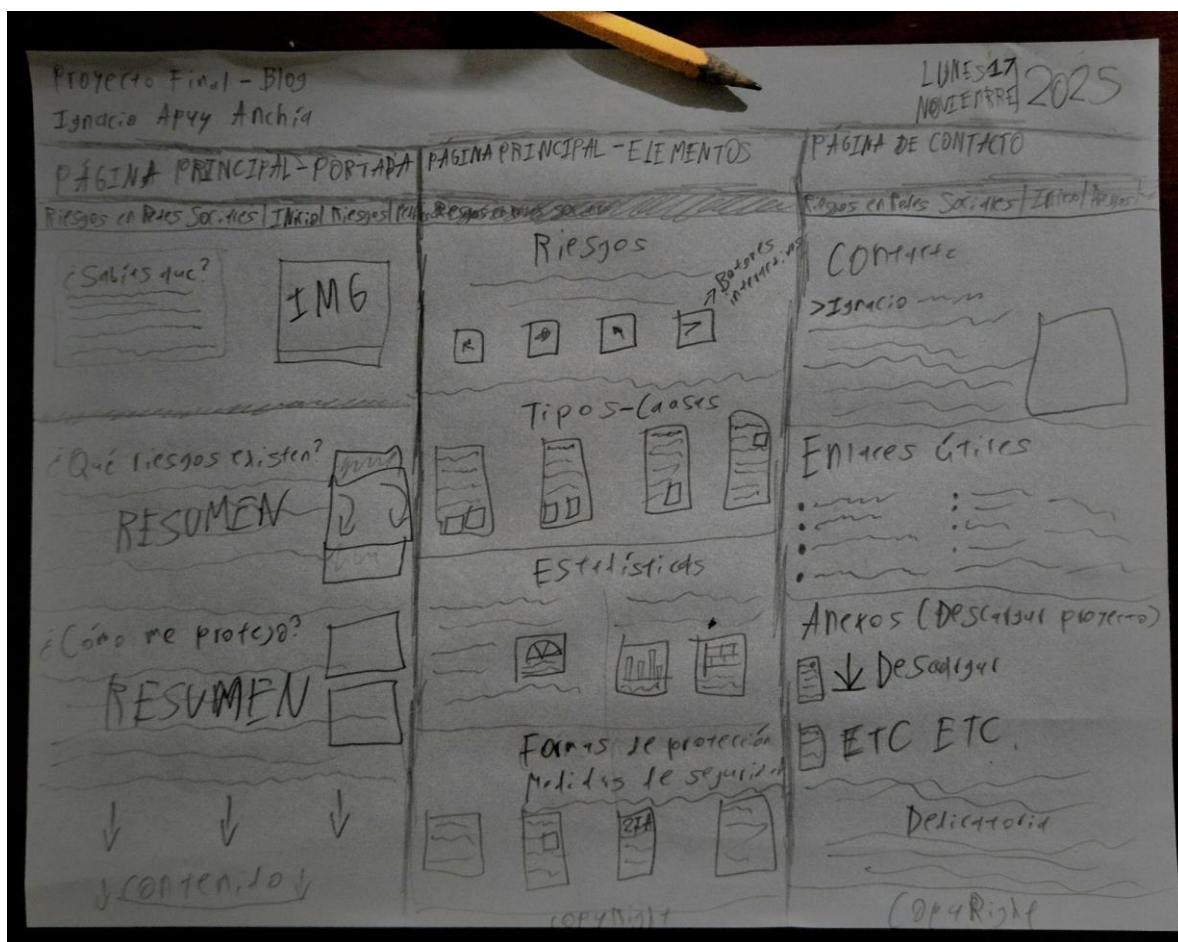 Proyecto Final - Blog
Ignacio Apuy Anchía
LUNES 17
NOVIEMBRE
2025
PÁGINA PRINCIPAL - PORTADA
Riesgos en Redes Sociales | Inicio | Riesgos |
¿Sabías que?
IMG
¿Qué riesgos existen?
RESUMEN
¿Cómo me protejo?
RESUMEN
↓ Contenido ↓
PÁGINA PRINCIPAL - ELEMENTOS
Riesgos en
Riesgos
Botones
interactivos
Tipos-Causas
Estadísticas
Formas de protección
Medidas de seguridad
2FA
CopyRight
PÁGINA DE CONTACTO
Riesgos en Redes Sociales | Inicio | Riesgos |
Contacto
>Ignacio
Enlaces útiles
Anexos (Descargar proyecto)
Descargar
ETC ETC.
Dedicatoria
CopyRight